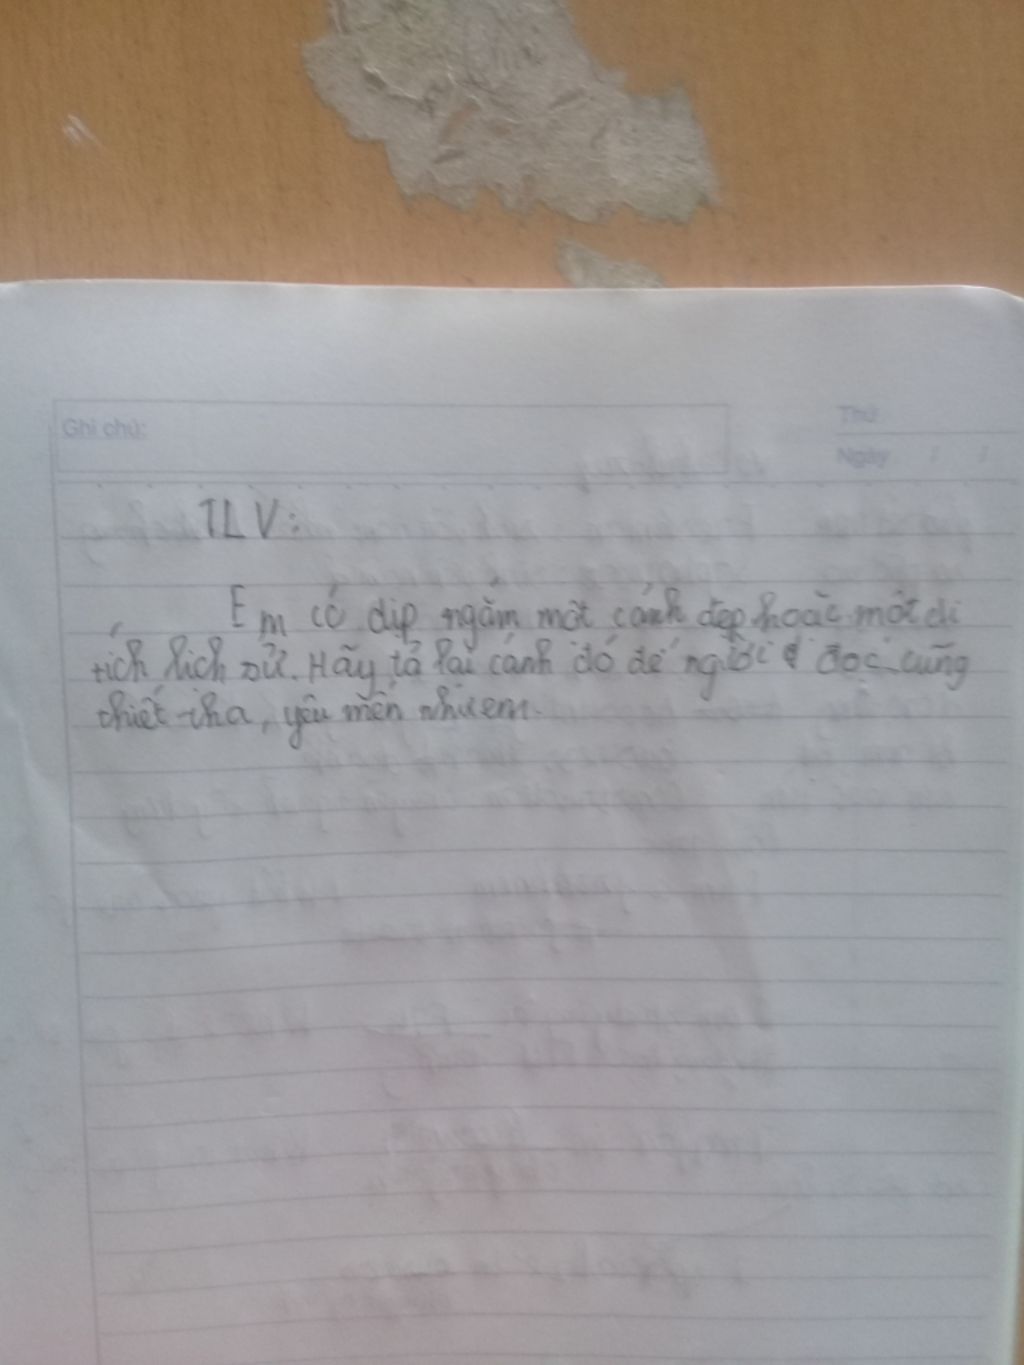 Ghi chú:
Thứ
Ngày / /
TLV:
Em có dịp ngắm một cảnh đẹp hoặc một di
tích lịch sử. Hãy tả lại cảnh đó để người đọc cũng
thiết tha, yêu mến như em.